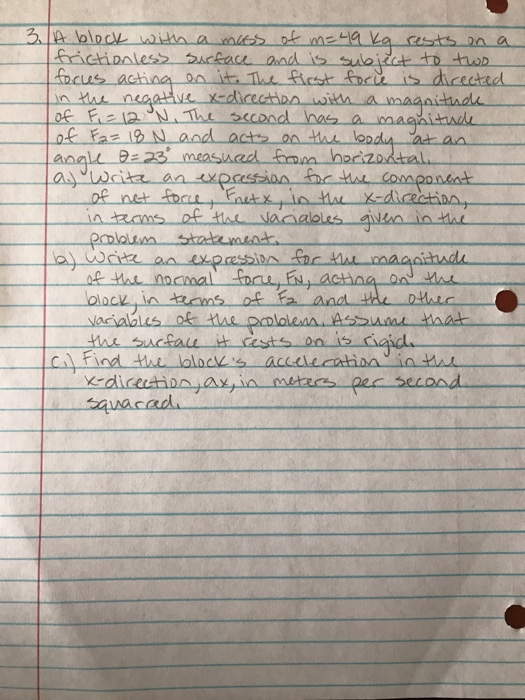 3. A block with a mass of m=49 kg rests on a
frictionless surface and is subject to two
forces acting on it. The first force is directed
in the negative x-direction with a magnitude
of F₁=12 N. The second has a magnitude
of F₂=18 N and acts on the body at an
angle θ=23° measured from horizontal.
a.) Write an expression for the component
of net force, Fnetx, in the x-direction,
in terms of the variables given in the
problem statement.
b.) Write an expression for the magnitude
of the normal force, FN, acting on the
block, in terms of F₂ and the other
variables of the problem. Assume that
the surface it rests on is rigid.
c.) Find the block's acceleration in the
x-direction, ax, in meters per second
squarred.